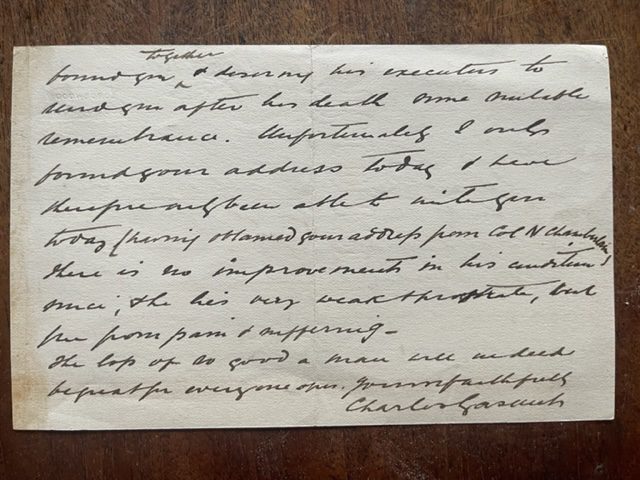 together
bound you ^ & desiring his executors to
send you after his death some suitable
remembrance. Unfortunately I only
found your address today & have
therefore only been able to write you
today (having obtained your address from Col N Chamberlain)
there is no improvement in his condition
since, & he lies very weak & prostrate, but
free from pain & suffering –
the loss of so good a man will indeed
be great for everyone of us. Yours faithfully
Charles